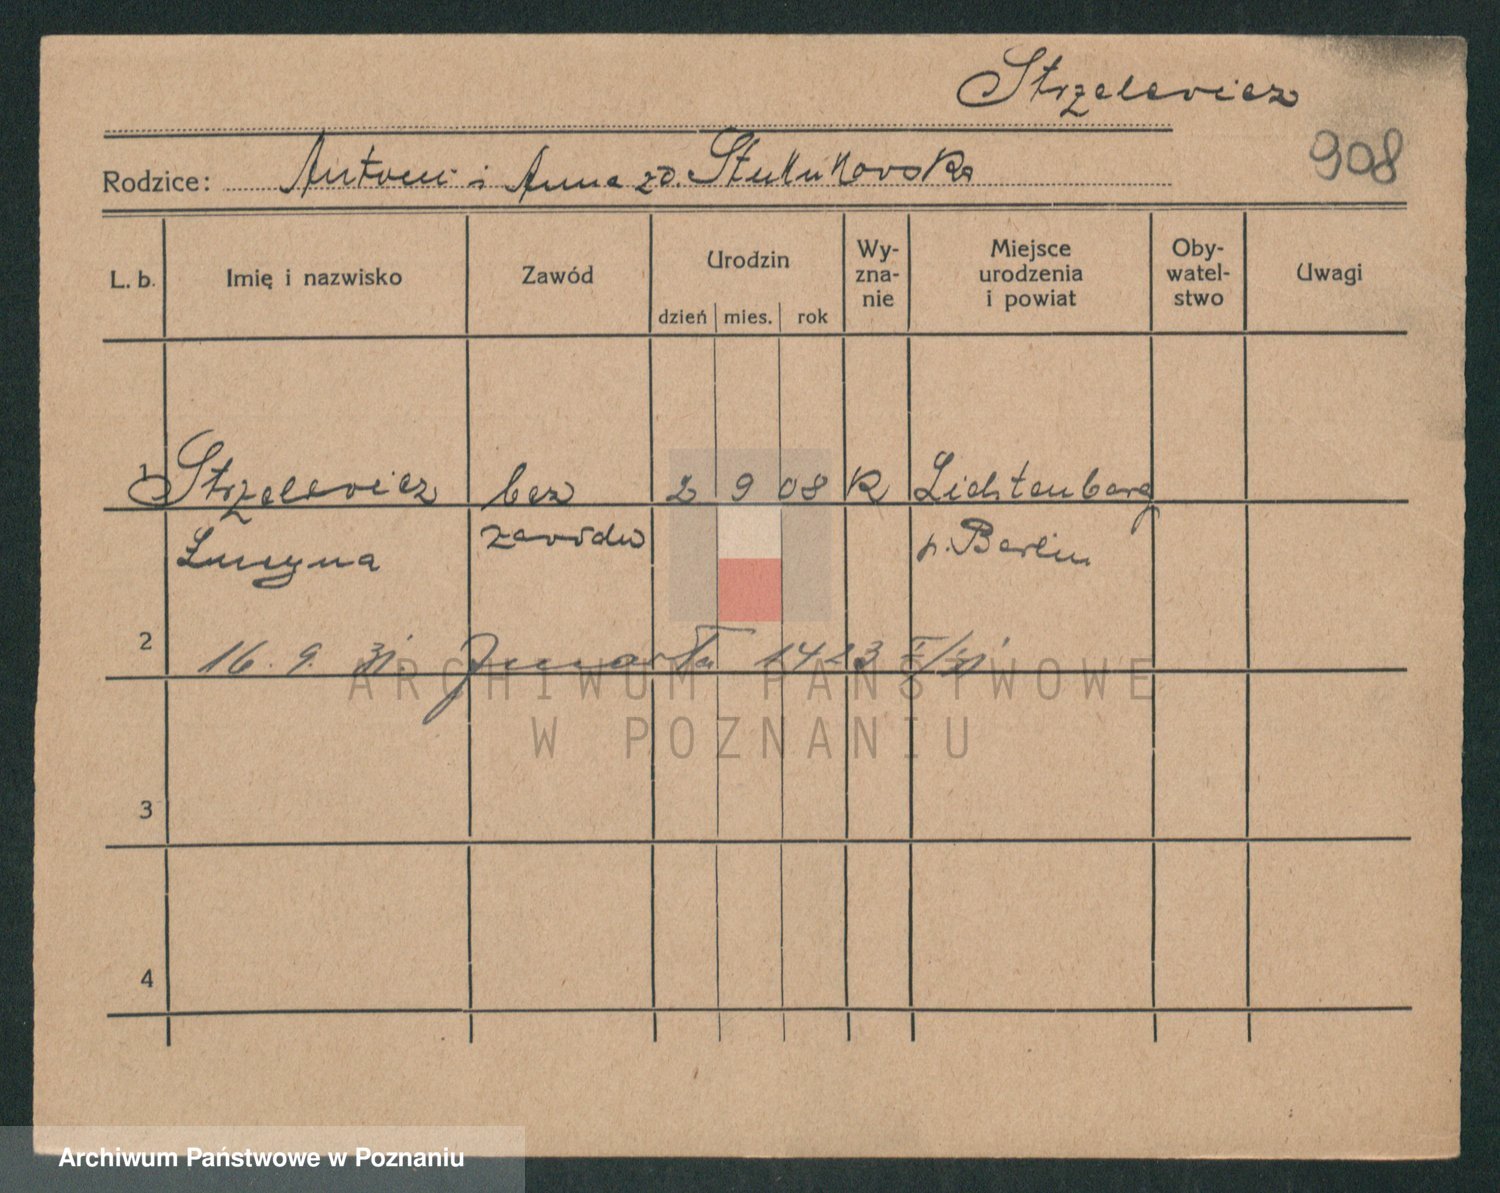 Strzelewicz
908
Rodzice: Antoni i Anna zd.
L. b. Imię i nazwisko Zawód Urodzin dzień mies. rok Wy-zna-nie Miejsce urodzenia i powiat Oby-watel-stwo Uwagi
1 Strzelewicz bez 2 9 08 R Lichtenberg
Lucyna zawodu p. Berlin
2 16. 9. 31
ARCHIWUM PAŃSTWOWE
W POZNANIU
3
4
Archiwum Państwowe w Poznaniu